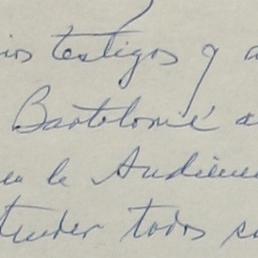 ios testigos y a
Bartolomé a
en la Audienc
tender todos s